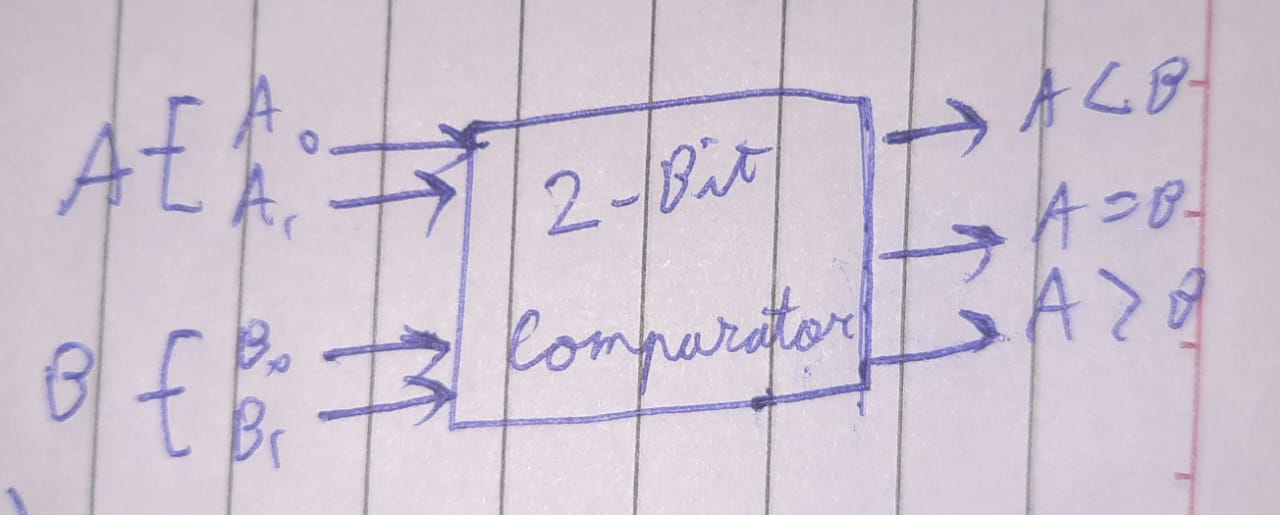 A
A₀
A₁
B
B₀
B₁
2-Bit
Comparator
A < B
A = B
A > B